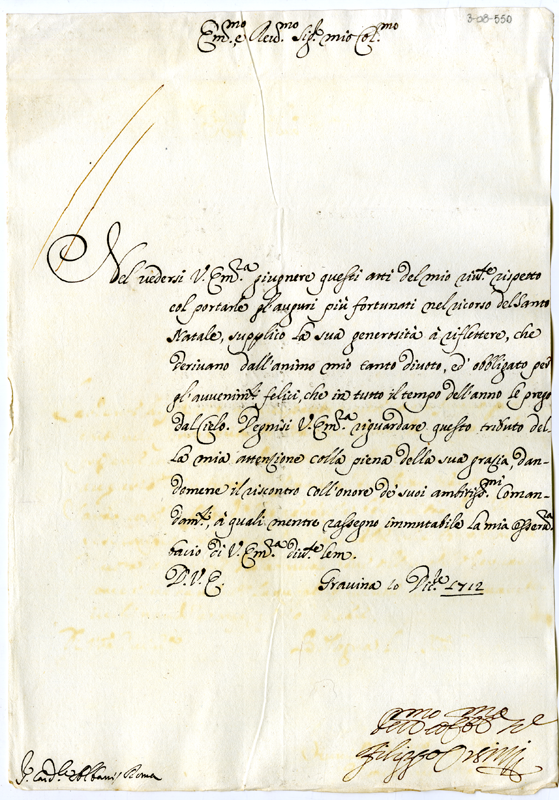 3-08-550
Em.mo e Reud.mo Sig.r mio Col.mo
Nel uedersi V. Em.za giugnere questi atti del mio riu.te rispetto
col portarle gl'auguri più fortunati nel ricorso del Santo
Natale, supplico la sua generosità à riflettere, che
deriuano dall'animo mio tanto diuoto, ed' obbligato per
gl'auuenim.ti felici, che in tutto il tempo dell'anno le prego
dal Cielo. Degnisi V. Em.za riguardare questo tributo del
la mia attenzione colla piena della sua grazia, dan-
domene il riscontro coll'onore de' suoi ambitiss.mi Coman-
dam.ti, à quali mentre rassegno immutabile la mia osseru.za
bacio di V. Em.za diu.te lem.
D. V. E. Gravina 10 Dic.re 1712
Filippo Orsini
S. Card.le Albani Roma